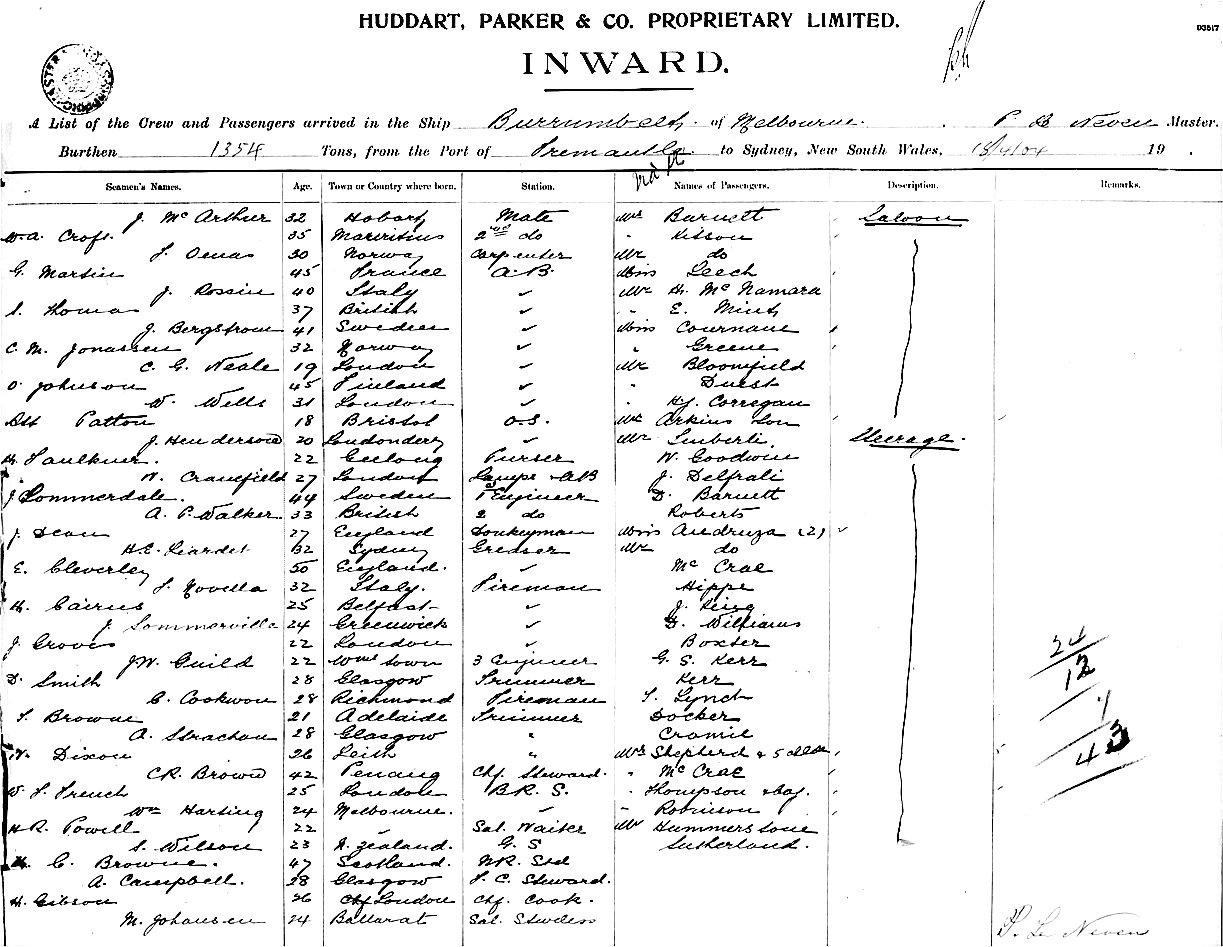 HUDDART, PARKER & CO. PROPRIETARY LIMITED.
03517
INWARD.
A List of the Crew and Passengers arrived in the Ship Burrumbeet, of Melbourne. P. Le Neven Master.
Burthen 1354 Tons, from the Port of Fremantle to Sydney, New South Wales, 18/4/04 19 .
Seamen's Names. Age. Town or Country where born. Station. Names of Passengers. Description. Remarks.
J. Mc Arthur 32 Hobart Mate Mr Barnett Saloon
W. A. Croft 35 Mauritius 2nd do
30 Norway Carpenter Mr do
G. Martin 45 France A.B. Miss Leech
J. Rossin 40 Italy ✓ Mr H. Mc Namara
S. Thomas 37 British ✓ " E. Mint
J. Bergstrom 41 Sweden ✓ Miss Cournane
C. M. Jonassen 32 Norway ✓ " Greene
C. G. Neale 19 London ✓ Mr Bloomfield
O. Johnson 45 Finland ✓ " Durst
W. Wells 31 London ✓ " H. J. Corregan
Patton 18 Bristol O.S. Mr Arkins Son
J. Henderson 20 Londonderry ✓ Mr Steerage.
H. Faulkner. 22 Geelong Purser W. Goodwin
W. Cranefield 27 London Lamps & AB J. Delfrali
J. Sommerdale. 44 Sweden 1 Engineer D. Barnett
A. P. Walker 33 British 2 do Roberts
J. Dean 27 England Donkeyman Miss Andruza (2)
H. E. Liardet 32 Sydney Greaser Mr do
E. Cleverley 50 England. ✓ Mc Crae
F. Novella 32 Italy. Fireman Hippe
H. Cairns 25 Belfast ✓ J. King
J. Sommerville 24 Greenwich ✓ Williams
J. Groves 22 London ✓ Boxter
J. W. Guild 22 Wms town 3 Engineer G. S. Kerr
D. Smith 28 Glasgow Trimmer Kerr
C. Cookwon 28 Richmond Fireman T. Lynch
T. Browne 21 Adelaide Trimmer Docker
A. Strachan 28 Glasgow " Cromie
W. Dixon 26 Leith " Mrs Shepherd & 5
C. R. Brown 42 Penang Chf. Steward. " Mc Crae
W. F. French 25 London B.R.S. " Thompson & bay.
Wm Harting 24 Melbourne. ✓ " Robinson
H. R. Powell 22 " Sal. Waiter Mr Hummerstone
S. Wilson 23 N. Zealand. G.S Sutherland.
H. C. Browne. 47 Scotland. NR. Std
A. Campbell. 28 Glasgow F. C. Steward.
H. Gibson 26 London Chf. Cook.
M. Johansen 24 Ballarat Sal. Stwdess
24
12
7
43
P. Le Neven